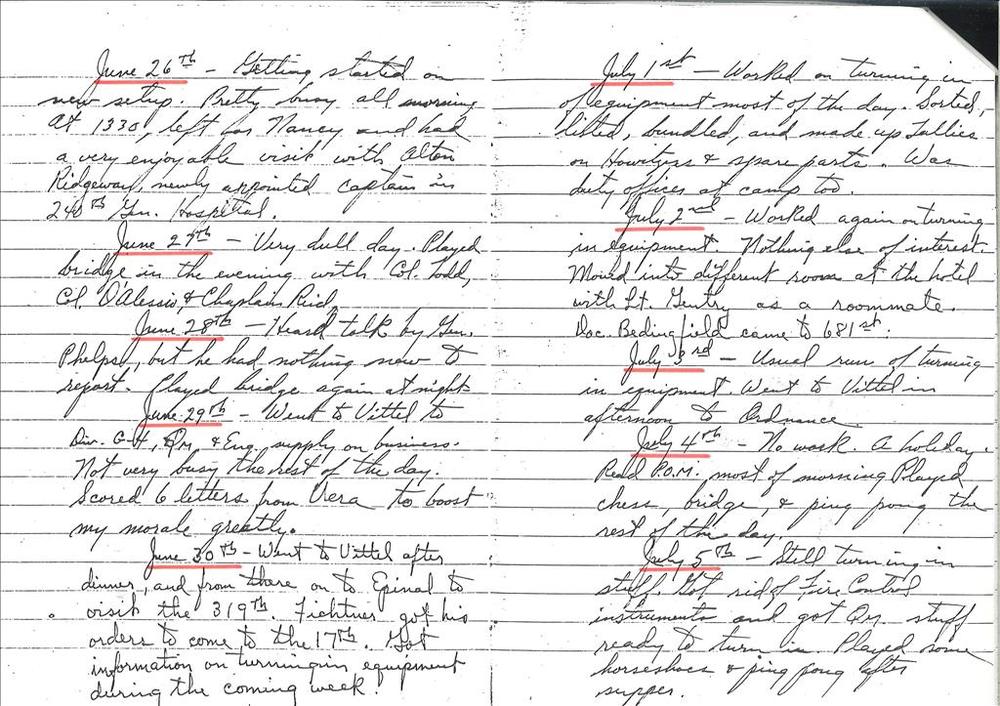 June 26th - Getting started on
new setup. Pretty busy all morning
At 1330, left for Nancy and had
a very enjoyable visit with Alton
Ridgeway, newly appointed captain in
240th Gen. Hospital.
June 27th - Very dull day. Played
bridge in the evening with Col. Todd,
Col. D'Alessio, & Chaplain Reid,
June 28th - Heard talk by Gen.
Phelps, but he had nothing new to
report. Played bridge again at night.
June 29th - Went to Vittel to
Div. G-4, Qm, & Eng. supply on business.
Not very busy the rest of the day.
Scored 6 letters from Vera to boost
my morale greatly.
June 30th - Went to Vittel after
dinner, and from there on to Epinal to
visit the 319th. Fichtner got his
orders to come to the 17th. Got
information on turning in equipment
during the coming week.
July 1st - Worked on turning in
of equipment most of the day. Sorted,
listed, bundled, and made up tallies
on Howitzers & spare parts. Was
duty officer at camp too.
July 2nd - Worked again on turning
in equipment. Nothing else of interest.
Moved into different room at the hotel
with Lt. Gentry as a roommate.
Doc. Bedingfield came to 681st.
July 3rd - Usual run of turning
in equipment. Went to Vittel in
afternoon to Ordnance.
July 4th - No work. A holiday.
Read P.O.M. most of morning Played
chess, bridge, & ping pong the
rest of the day.
July 5th - Still turning in
stuff. Got rid of Fire Control
instruments and got Qm. stuff
ready to turn in. Played some
horseshoes & ping pong after
supper.